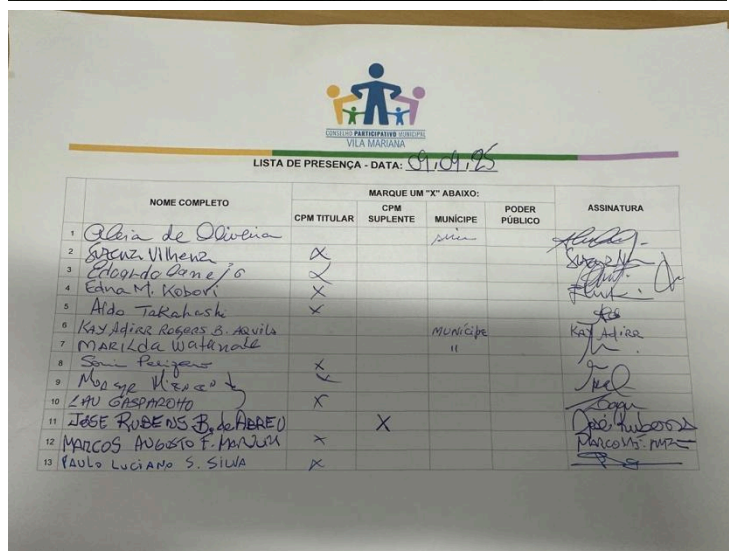 CONSELHO PARTICIPATIVO MUNICIPAL
VILA MARIANA
LISTA DE PRESENÇA - DATA: 09,09,25
MARQUE UM "X" ABAIXO:
NOME COMPLETO CPM TITULAR CPM SUPLENTE MUNÍCIPE PODER PÚBLICO ASSINATURA
1 de Oliveira sim
2 Suzana Vilhena X
3 Edoardo X
4 Edna M. Kobori X
5 Aldo Takahashi X
6 KAY Adira Rogers B. Aquila Munícipe KAY Adira
7 MARILda Watanabe "
8 X
9 X
10 LAU GASPAROTTO X
11 JOSE RUBENS B. de ABREU X José Rubens
12 MARCOS AUGUSTO F. X MARCOS
13 PAULO LUCIANO S. SILVA X